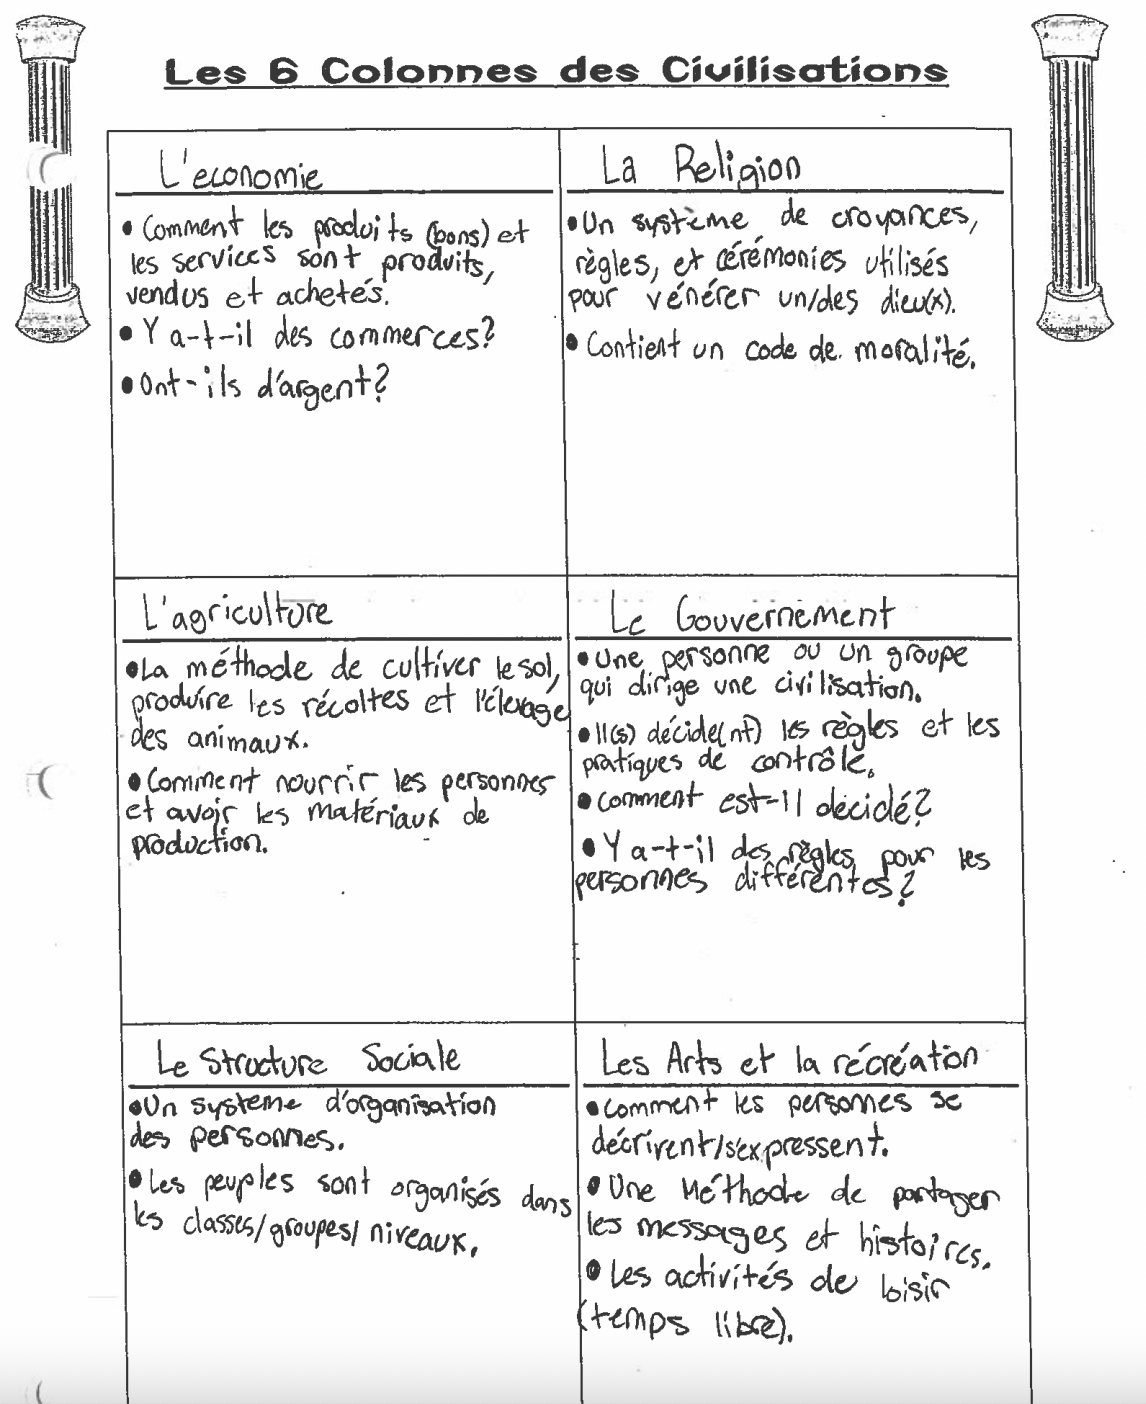 Les 6 Colonnes des Civilisations
L'economie
• Comment les produits (bons) et
les services sont produits,
vendus et achetés.
• Y a-t-il des commerces?
• Ont-ils d'argent?
La Religion
• Un système de croyances,
règles, et cérémonies utilisés
pour vénérer un/des dieu(x).
• Contient un code de moralité.
L'agriculture
• La méthode de cultiver le sol,
produire les récoltes et l'élevage
des animaux.
• Comment nourrir les personnes
et avoir les matériaux de
production.
Le Gouvernement
• Une personne ou un groupe
qui dirige une civilisation.
• Il(s) décide(nt) les règles et les
pratiques de contrôle.
• Comment est-il décidé?
• Y a-t-il des règles pour les
personnes différentes?
Le Structure Sociale
• Un système d'organisation
des personnes.
• Les peuples sont organisés dans
les classes/groupes/niveaux.
Les Arts et la récréation
• Comment les personnes se
décrivent/s'expressent.
• Une Méthode de partager
les messages et histoires.
• Les activités de loisir
(temps libre).